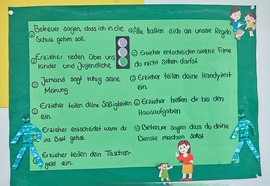 Betreuer sagen, dass ich in die
Schule gehen soll.
Erzieher reden über uns
Kinder und Jugendliche
Jemand sagt ruhig seine
Meinung
Erzieher teilen deine Süßigkeiten
ein.
Erzieher entscheidet wann du
ins Bett gehst.
Erzieher teilen dein Taschen-
geld ein.
Alle halten sich an unsere Regeln
Erzieher entscheiden welche Filme
du nicht sehen darfst
Erzieher teilen deine Handyzeit
ein.
Erzieher helfen dir bei den
Hausaufgaben
Betreuer sagen dass du deine
Dienste machen sollst